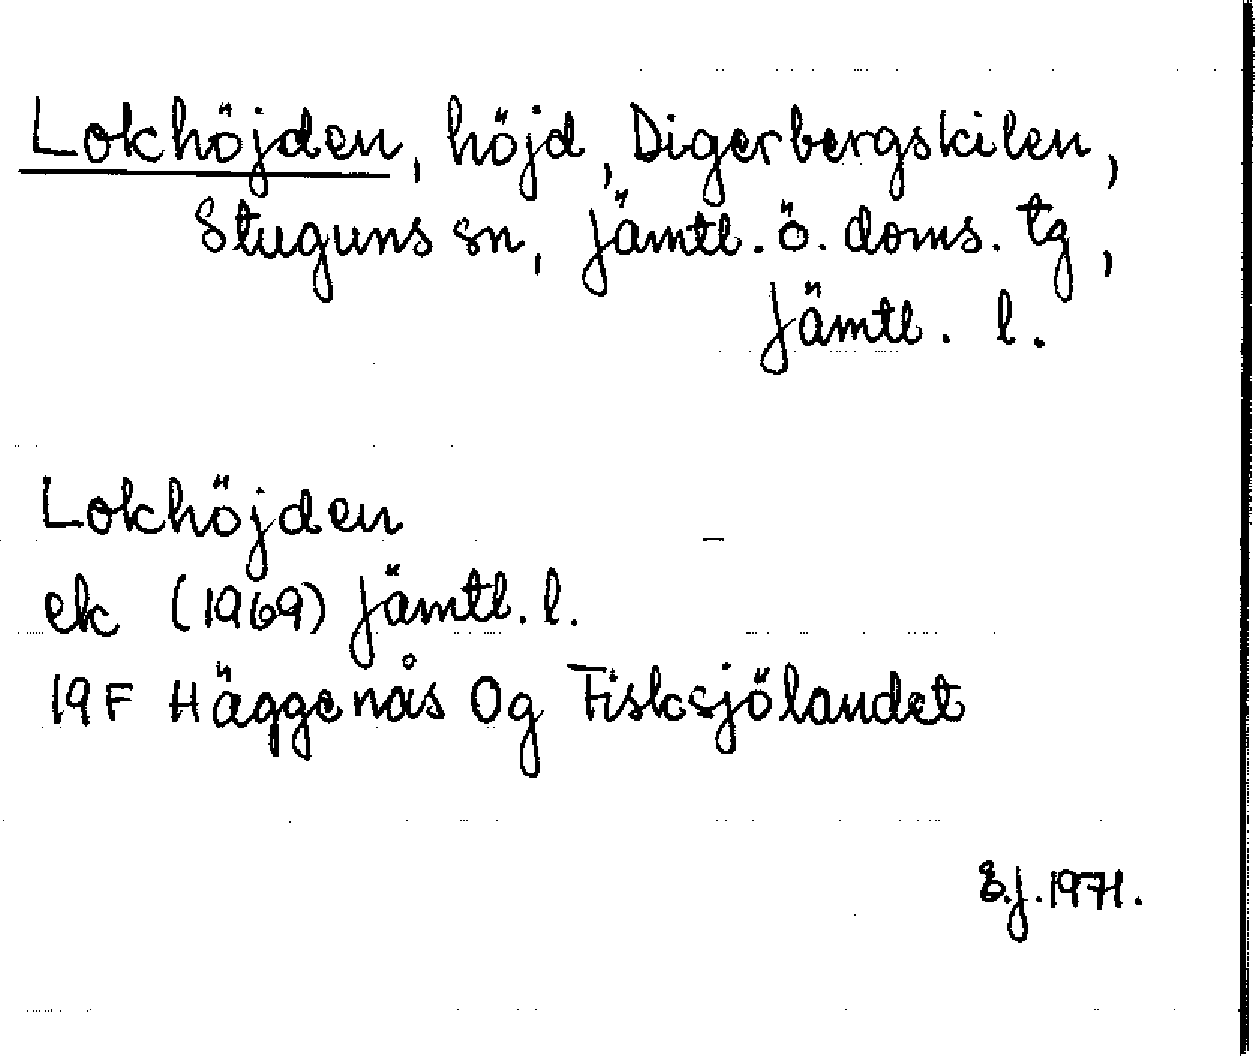 Lokhöjden, höjd, Digerbergskilen,
Stuguns sn, Jämtl. ö. doms. tg,
Jämtl. l.
Lokhöjden
ek (1969) Jämtl. l.
19F Häggenås 0g Fisksjölandet
E.J. 1971.